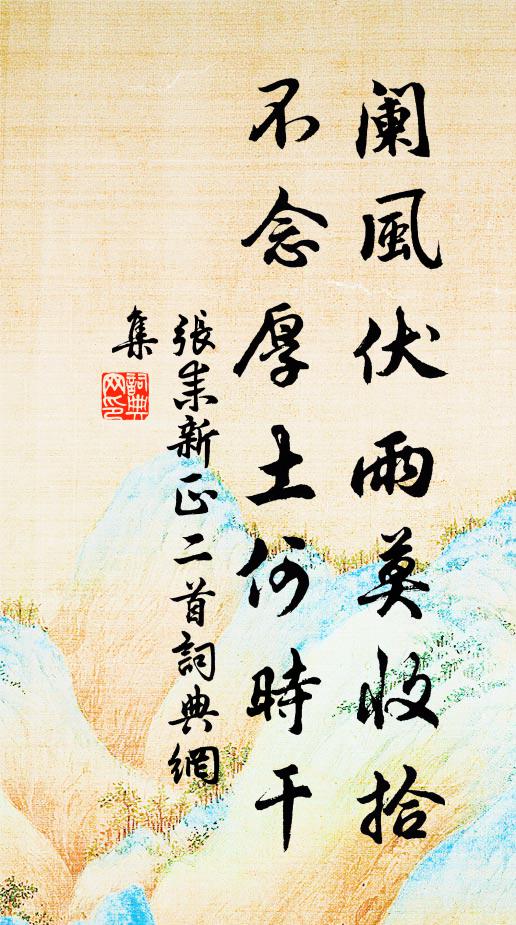 阑風伏雨莫收拾
不念厚土何時干
張耒新正二首詞典網
集
詞典
网印